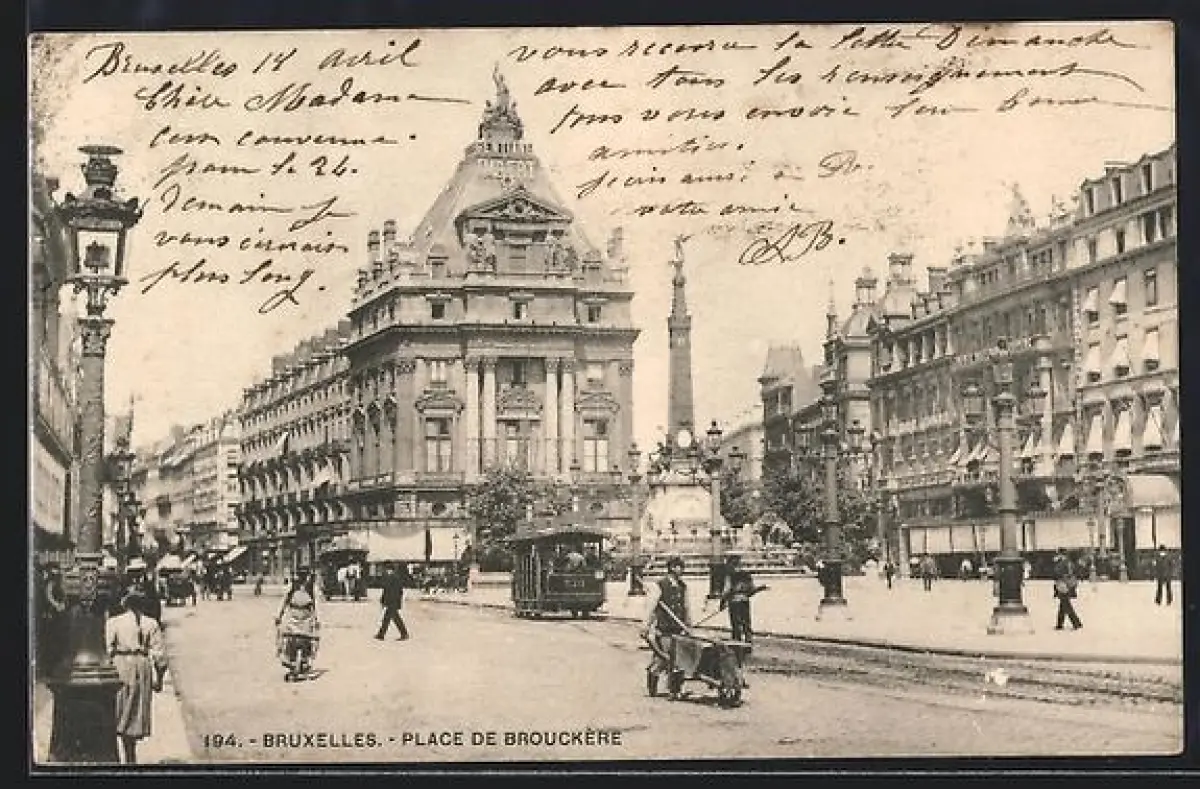 Bruxelles 14 avril
Chère Madame
c'est convenu
pour le 26.
Demain je
vous écrirais
plus long.
vous recevra la lettre Dimanche
avec tous les renseignement
vous envoie bonne
amitiés.
aussi a
votre amie
AB.
194. - BRUXELLES. - PLACE DE BROUCKÈRE